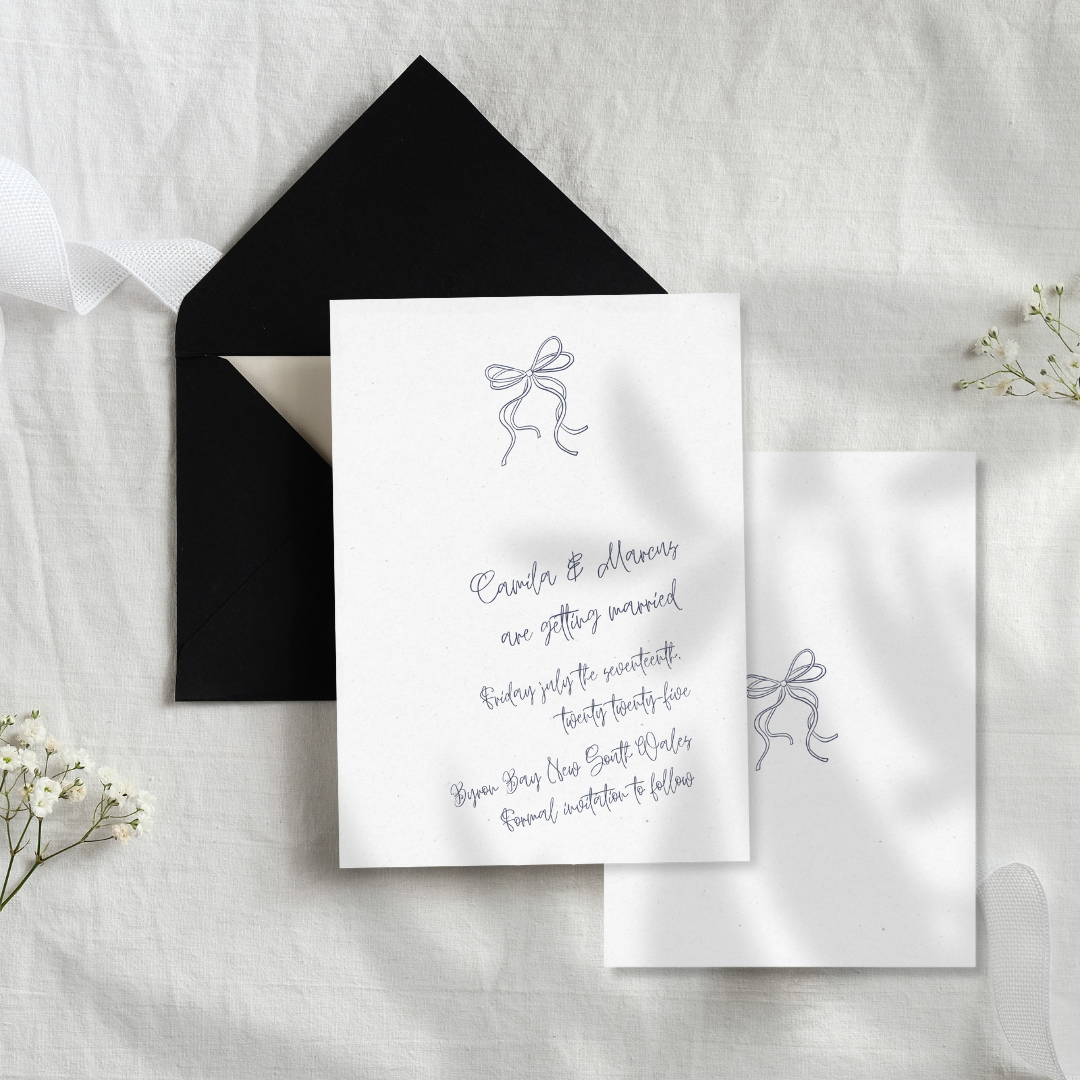 Camila & Marcus
are getting married
Friday july the seventeenth,
twenty twenty-five
Byron Bay New South Wales
Formal invitation to follow